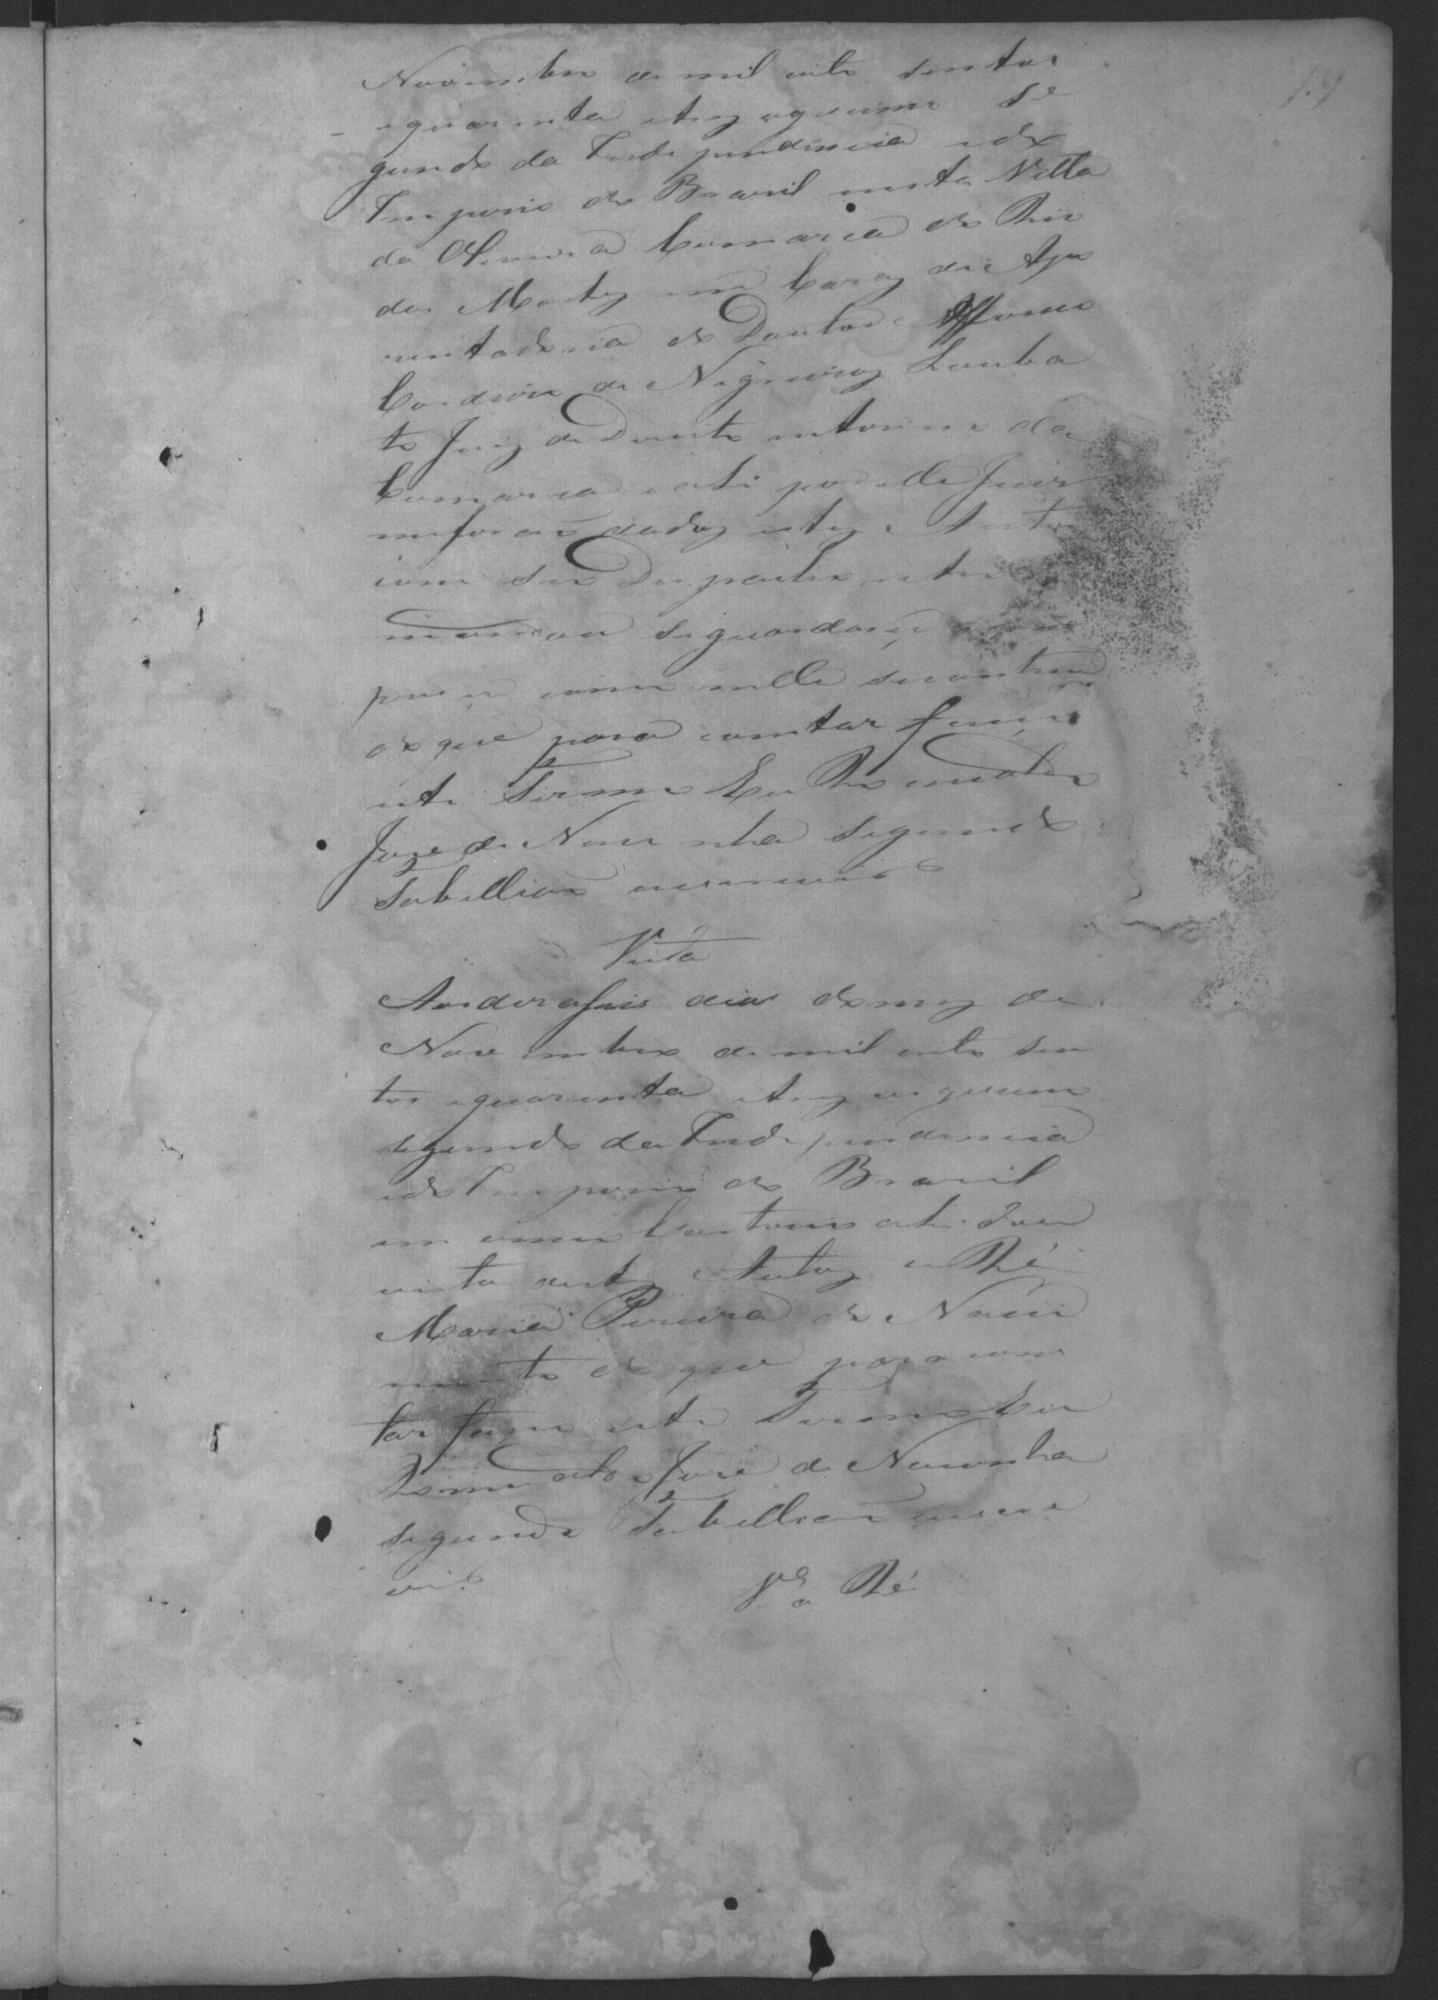 19
Novembro de mil oito sentos
equarenta etrez vigecimo Se
gundo da Indipendincia edo
Imperio do Brasil nesta Villa
da Comarca do Rio
das Mortes em Cazaz de Apo
zentadoria do Doutor
Cordeiro de Negreiros Loba
to Juiz de Direito interino da
Comarca eahi por elle Juiz
meforão dados estes Autos
com seu Despacho retro
mandou seguardaçe
pra çe como nelle secontem
do que para constar faço
este Termo Eu Romualdo
Joze de Noronha Segundo
Tabellião oescrevi
Vista
Aosdezaseis dias domez de
Novembro de mil oito sen
tos equarenta etrez vigecimo
segundo da Indipendencia
edo Imperio do Brasil
em meu Cartorio ahi dou
vista destes Autos a Ré
Maria Pereira do Nasci
mento do que para cons
tar faço este Termo Eu
Romualdo Joze de Noronha
segundo Tabellião oescre
vi
Va Ré